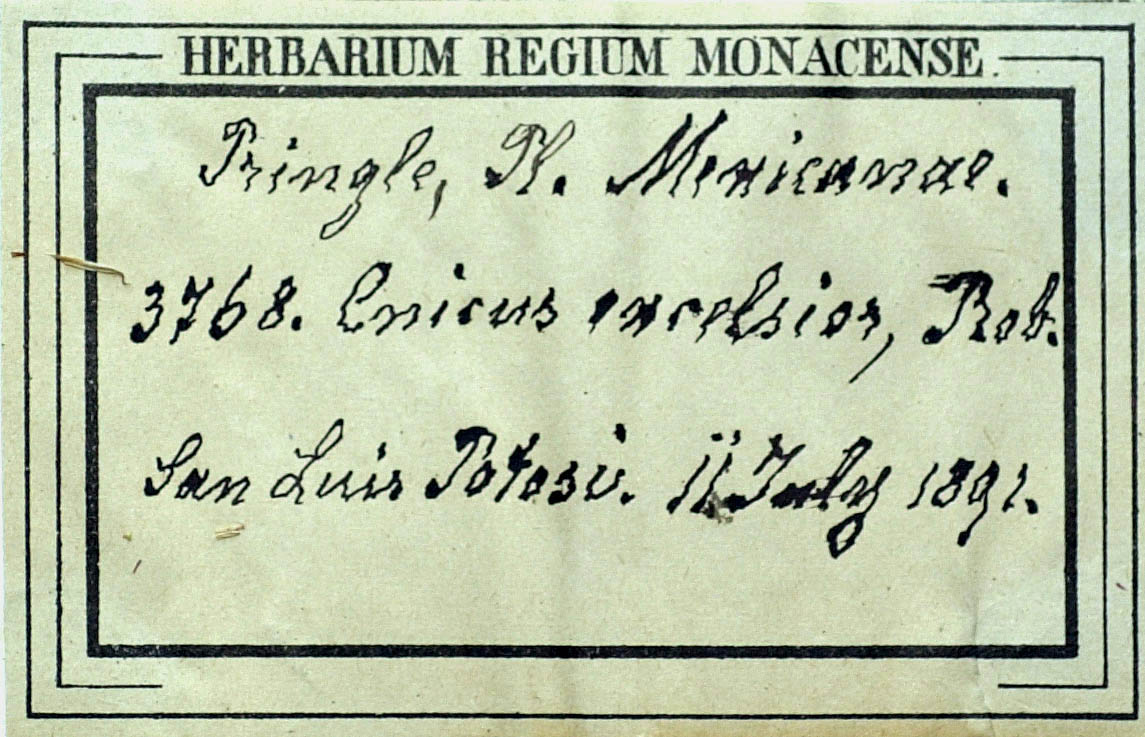 HERBARIUM REGIUM MONACENSE.
Pringle, Pl. Mexicanae.
3768. Cnicus excelsior, Rob.
San Luis Potosi. 11 July 1891.